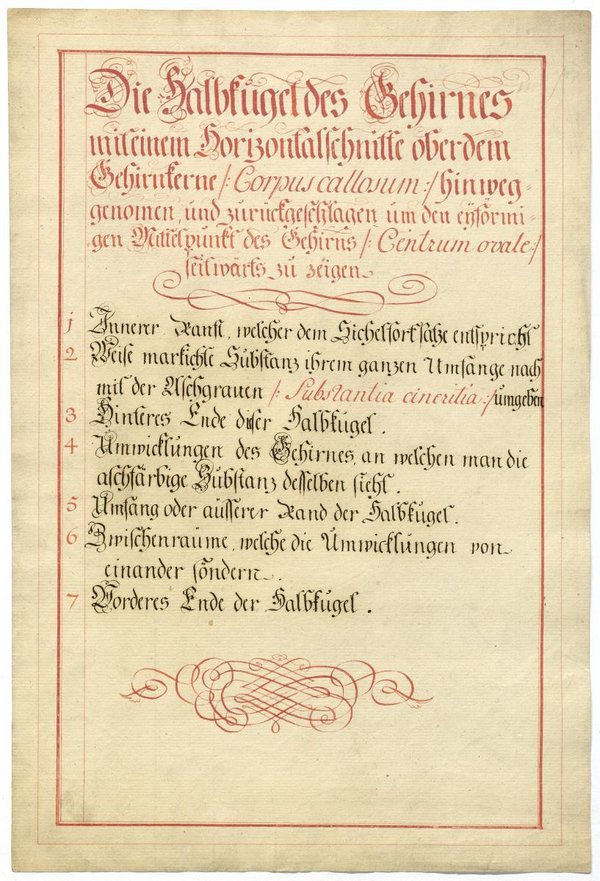 Die Halbkugel des Gehirnes
mit einem Horizontalschnitte ober dem
Gehirnkerne /: Corpus callosum :/ hinweg-
genomen, und zurückgeschlagen um den eyförmi-
gen Mittelpunkt des Gehirns /: Centrum ovale :/
seitwärts zu zeigen
1 Innerer Ranft, welcher dem Sichelfortsatze entspricht
2 Weise markichte Substanz ihrem ganzen Umfange nach
mit der Aschgrauen /: Substantia cineritia :/ umgeben
3 Hinteres Ende diser Halbkugel.
4 Umwicklungen des Gehirnes, an welchen man die
aschfärbige Substanz desselben sieht.
5 Umfang oder äusserer Rand der Halbkugel.
6 Zwischenraume, welche die Umwicklungen von
einander söndern.
7 Vorderes Ende der Halbkugel.